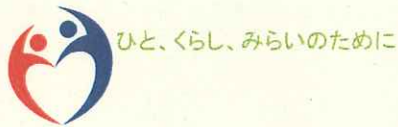 ひと、くらし、みらいのために